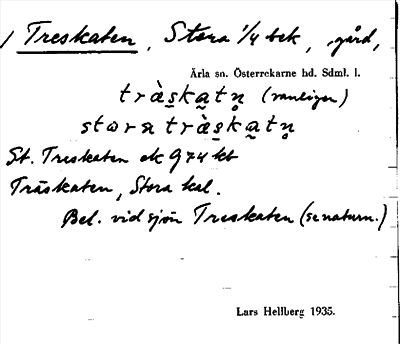 1 Treskaten, Stora 1/4 bek, gård,
Ärla sn. Österrekarne hd. Sdml. l.
trà̀skatn (vanligen)
stora trà̀skatn
St. Treskaten ek 974 kb
Träskaten, Stora kal.
Bel. vid sjön Treskaten (se naturn.)
Lars Hellberg 1935.